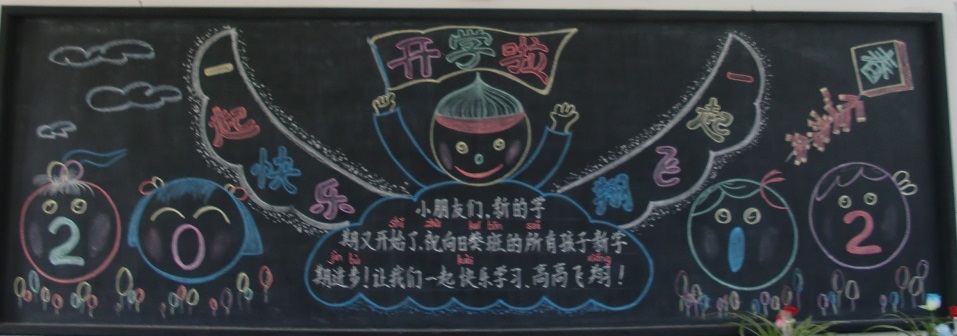 开学啦
一起快乐
一起飞翔
春
小朋友们,新的学
shǐ zhù kuí bān suǒ
期又开始了,祝向日葵班的所有孩子新学
jìn bù kuài xiáng
期进步!让我们一起快乐学习、高高飞翔!
2 0 2